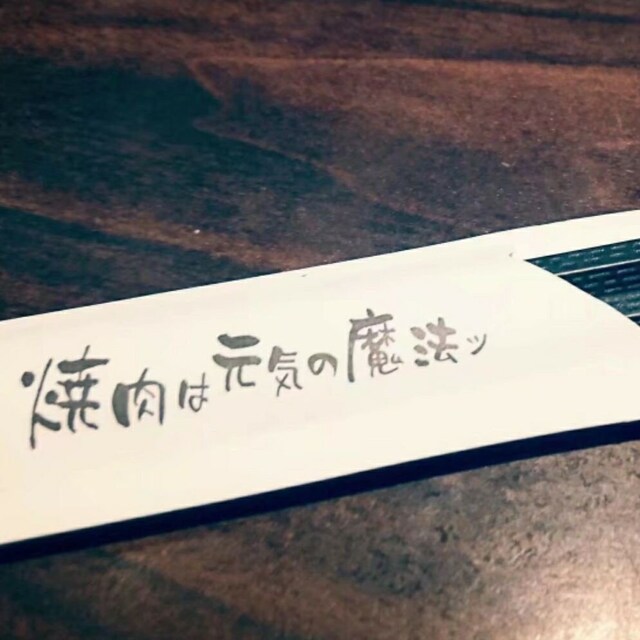 焼肉は元気の魔法ッ